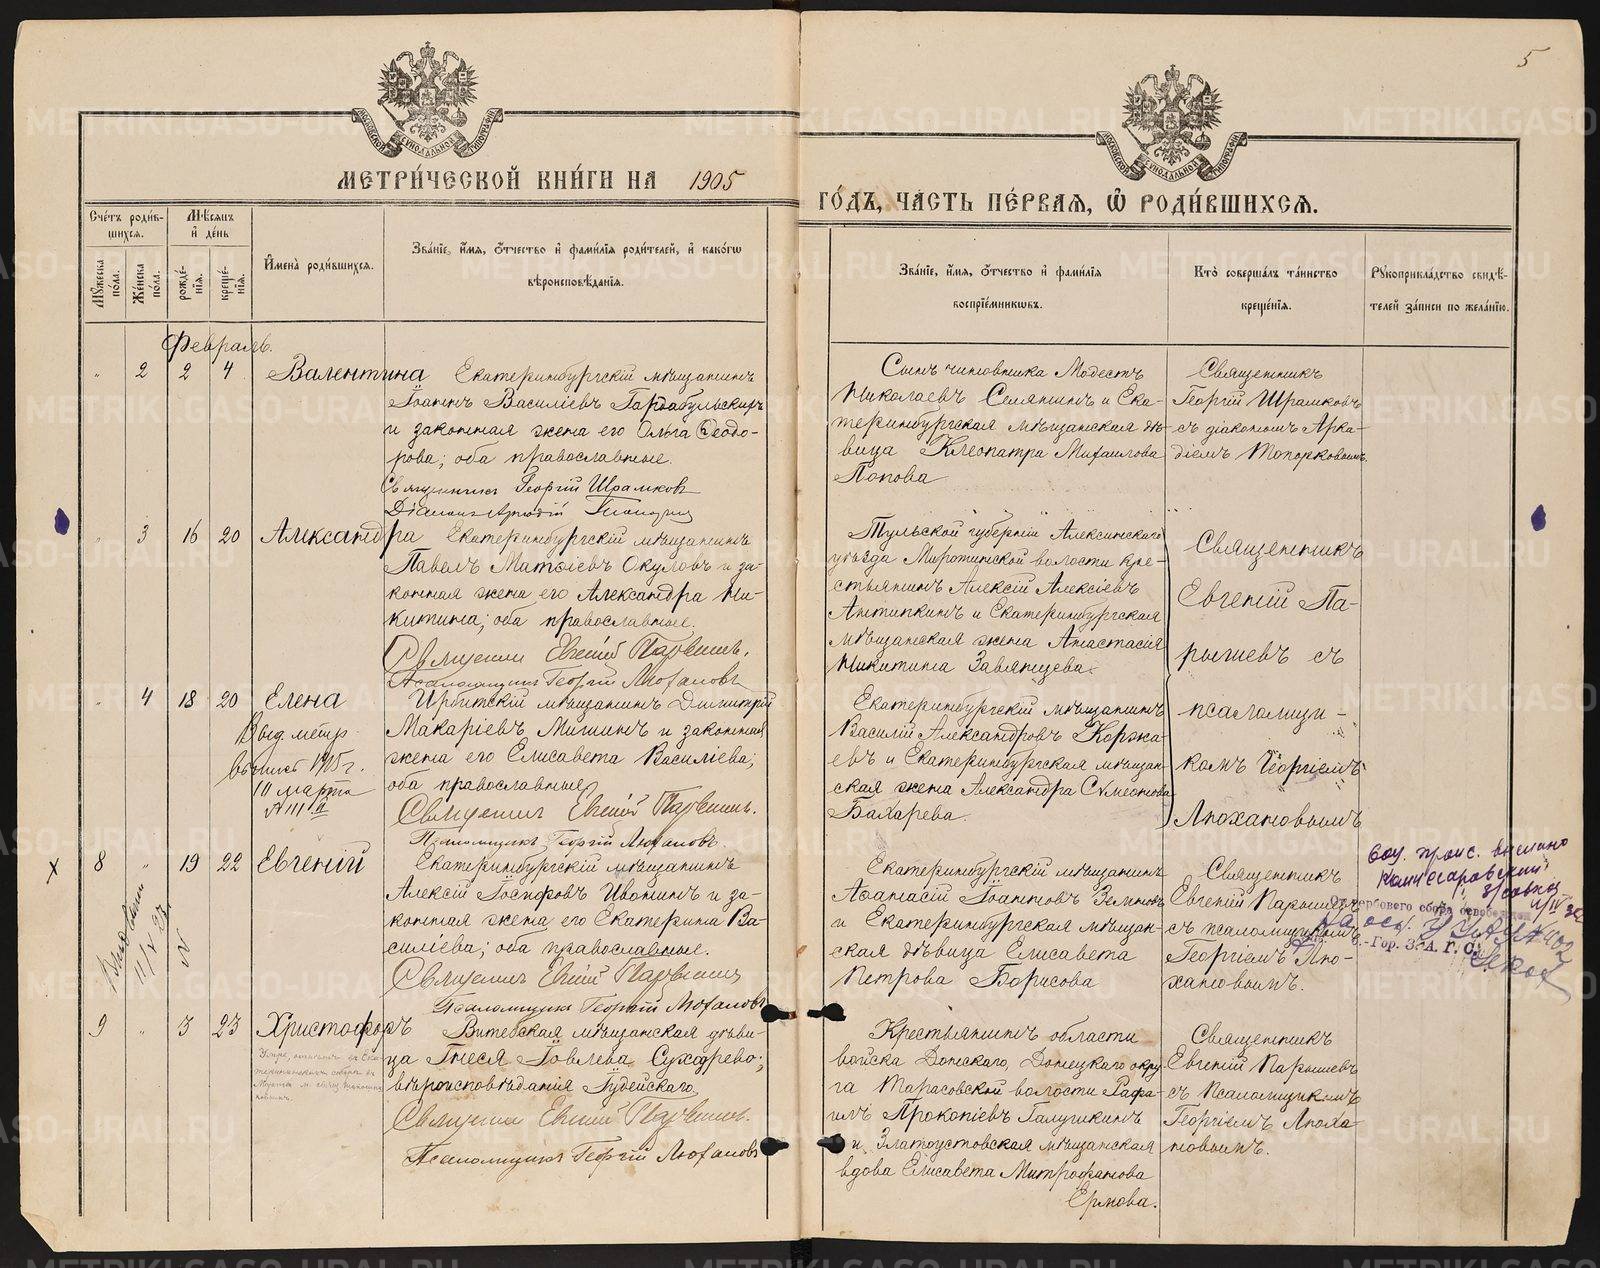 5
МЕТРИ́ЧЕСКОЙ КНИ́ГИ НА 1905
ГО́ДЪ, ЧА́СТЬ ПЕ́РВАЯ, Ѽ РОДИ́ВШИХСЯ.
Сче́тъ роди́вшихся.
Мѣ́сяцъ и҆ де́нь
Му́жеска по́ла.
Же́нска по́ла.
рожде́нїя.
креще́нїя.
И҆мена̀ роди́вшихся.
Зва́нїе, и҆́мя, ѻ҆́тчество и҆ фами́лїя роди́телей, и҆ како́гѡ
вѣроисповѣ́данїя.
Зва́нїе, и҆́мя, ѻ҆́тчество и҆ фами́лїя
воспрїе́мникѡвъ.
Кто̀ соверша́лъ та́инство
креще́нїя.
Рꙋкоприкла́дство свидѣ́-
телей за́писи по жела́нїю.
Февраль.
" 2 2 4 Валентина
Екатеринбургскій мѣщанинъ
Іоаннъ Василіевъ
и законная жена его Ольга Ѳеодо-
рова; оба православные.
Священникъ Георгій Шрамковъ
Сынъ чиновника Модестъ
Николаевъ Селянинъ и Ека-
теринбургская мѣщанская дѣ-
вица Клеопатра Михаилова
Попова
Священникъ
Георгій Шрамковъ
съ діакономъ Арка-
діемъ Топорковымъ.
" 3 16 20 Александра
Екатеринбургскій мѣщанинъ
Павелъ Матѳіевъ Окуловъ и за-
конная жена его Александра Ни-
китина; оба православные.
Священникъ Евгеній Парышевъ.
Псаломщикъ Георгій Люхановъ
Тульской губерніи Алексинскаго
уѣзда Миротинской волости кре-
стьянинъ Алексій Алексіевъ
Антипкинъ и Екатеринбургская
мѣщанская жена Анастасія
Никитина Завянцева.
Священникъ
Евгеній Па-
рышевъ съ
псаломщи-
комъ Георгіемъ
Люхановымъ
" 4 18 20 Елена
Выд. метр.
выпись 1915 г.
10 марта
Ирбитскій мѣщанинъ Димитрій
Макаріевъ Мишинъ и законная
жена его Елисавета Василіева;
оба православные
Священникъ Евгеній Парышевъ.
Псаломщикъ Георгій Люхановъ
Екатеринбургскій мѣщанинъ
Василій Александровъ Коржа-
евъ и Екатеринбургская мѣщан-
ская жена Александра Сѵмеонова
Бахарева.
х 8 " 19 22 Евгеній
Екатеринбургскій мѣщанинъ
Алексій Іосифовъ Ивонинъ и за-
конная жена его Екатерина Ва-
силіева; оба православные.
Священникъ Евгеній Парышевъ
Псаломщикъ Георгій Люхановъ
Екатеринбургскій мѣщанинъ
Аѳанасій Іоанновъ
и Екатеринбургская мѣщан-
ская дѣвица Елисавета
Петрова Борисова
Священникъ
Евгеній Парышевъ
съ псаломщикомъ
Георгіемъ Лю-
хановымъ.
гербового сбора
Гор. З. А. Г. С.
9 " 3 23 Христофоръ
Витебская мѣщанская дѣви-
ца Гнеся Іовлева Сухарево;
вѣроисповѣданія Іудейскаго
Священникъ Евгеній Парышевъ.
Псаломщикъ Георгій Люхановъ
Крестьянинъ области
войска Донскаго, Донецкаго окру-
га Тарасовской волости Рафа-
илъ Прокопіевъ Галушкинъ
и Златоустовская мѣщанская
вдова Елисавета Митрофанова
Ермова.
Священникъ
Евгеній Парышевъ
съ Псаломщикомъ
Георгіемъ Люха-
новымъ.
METRIKI.GASO-URAL.RU